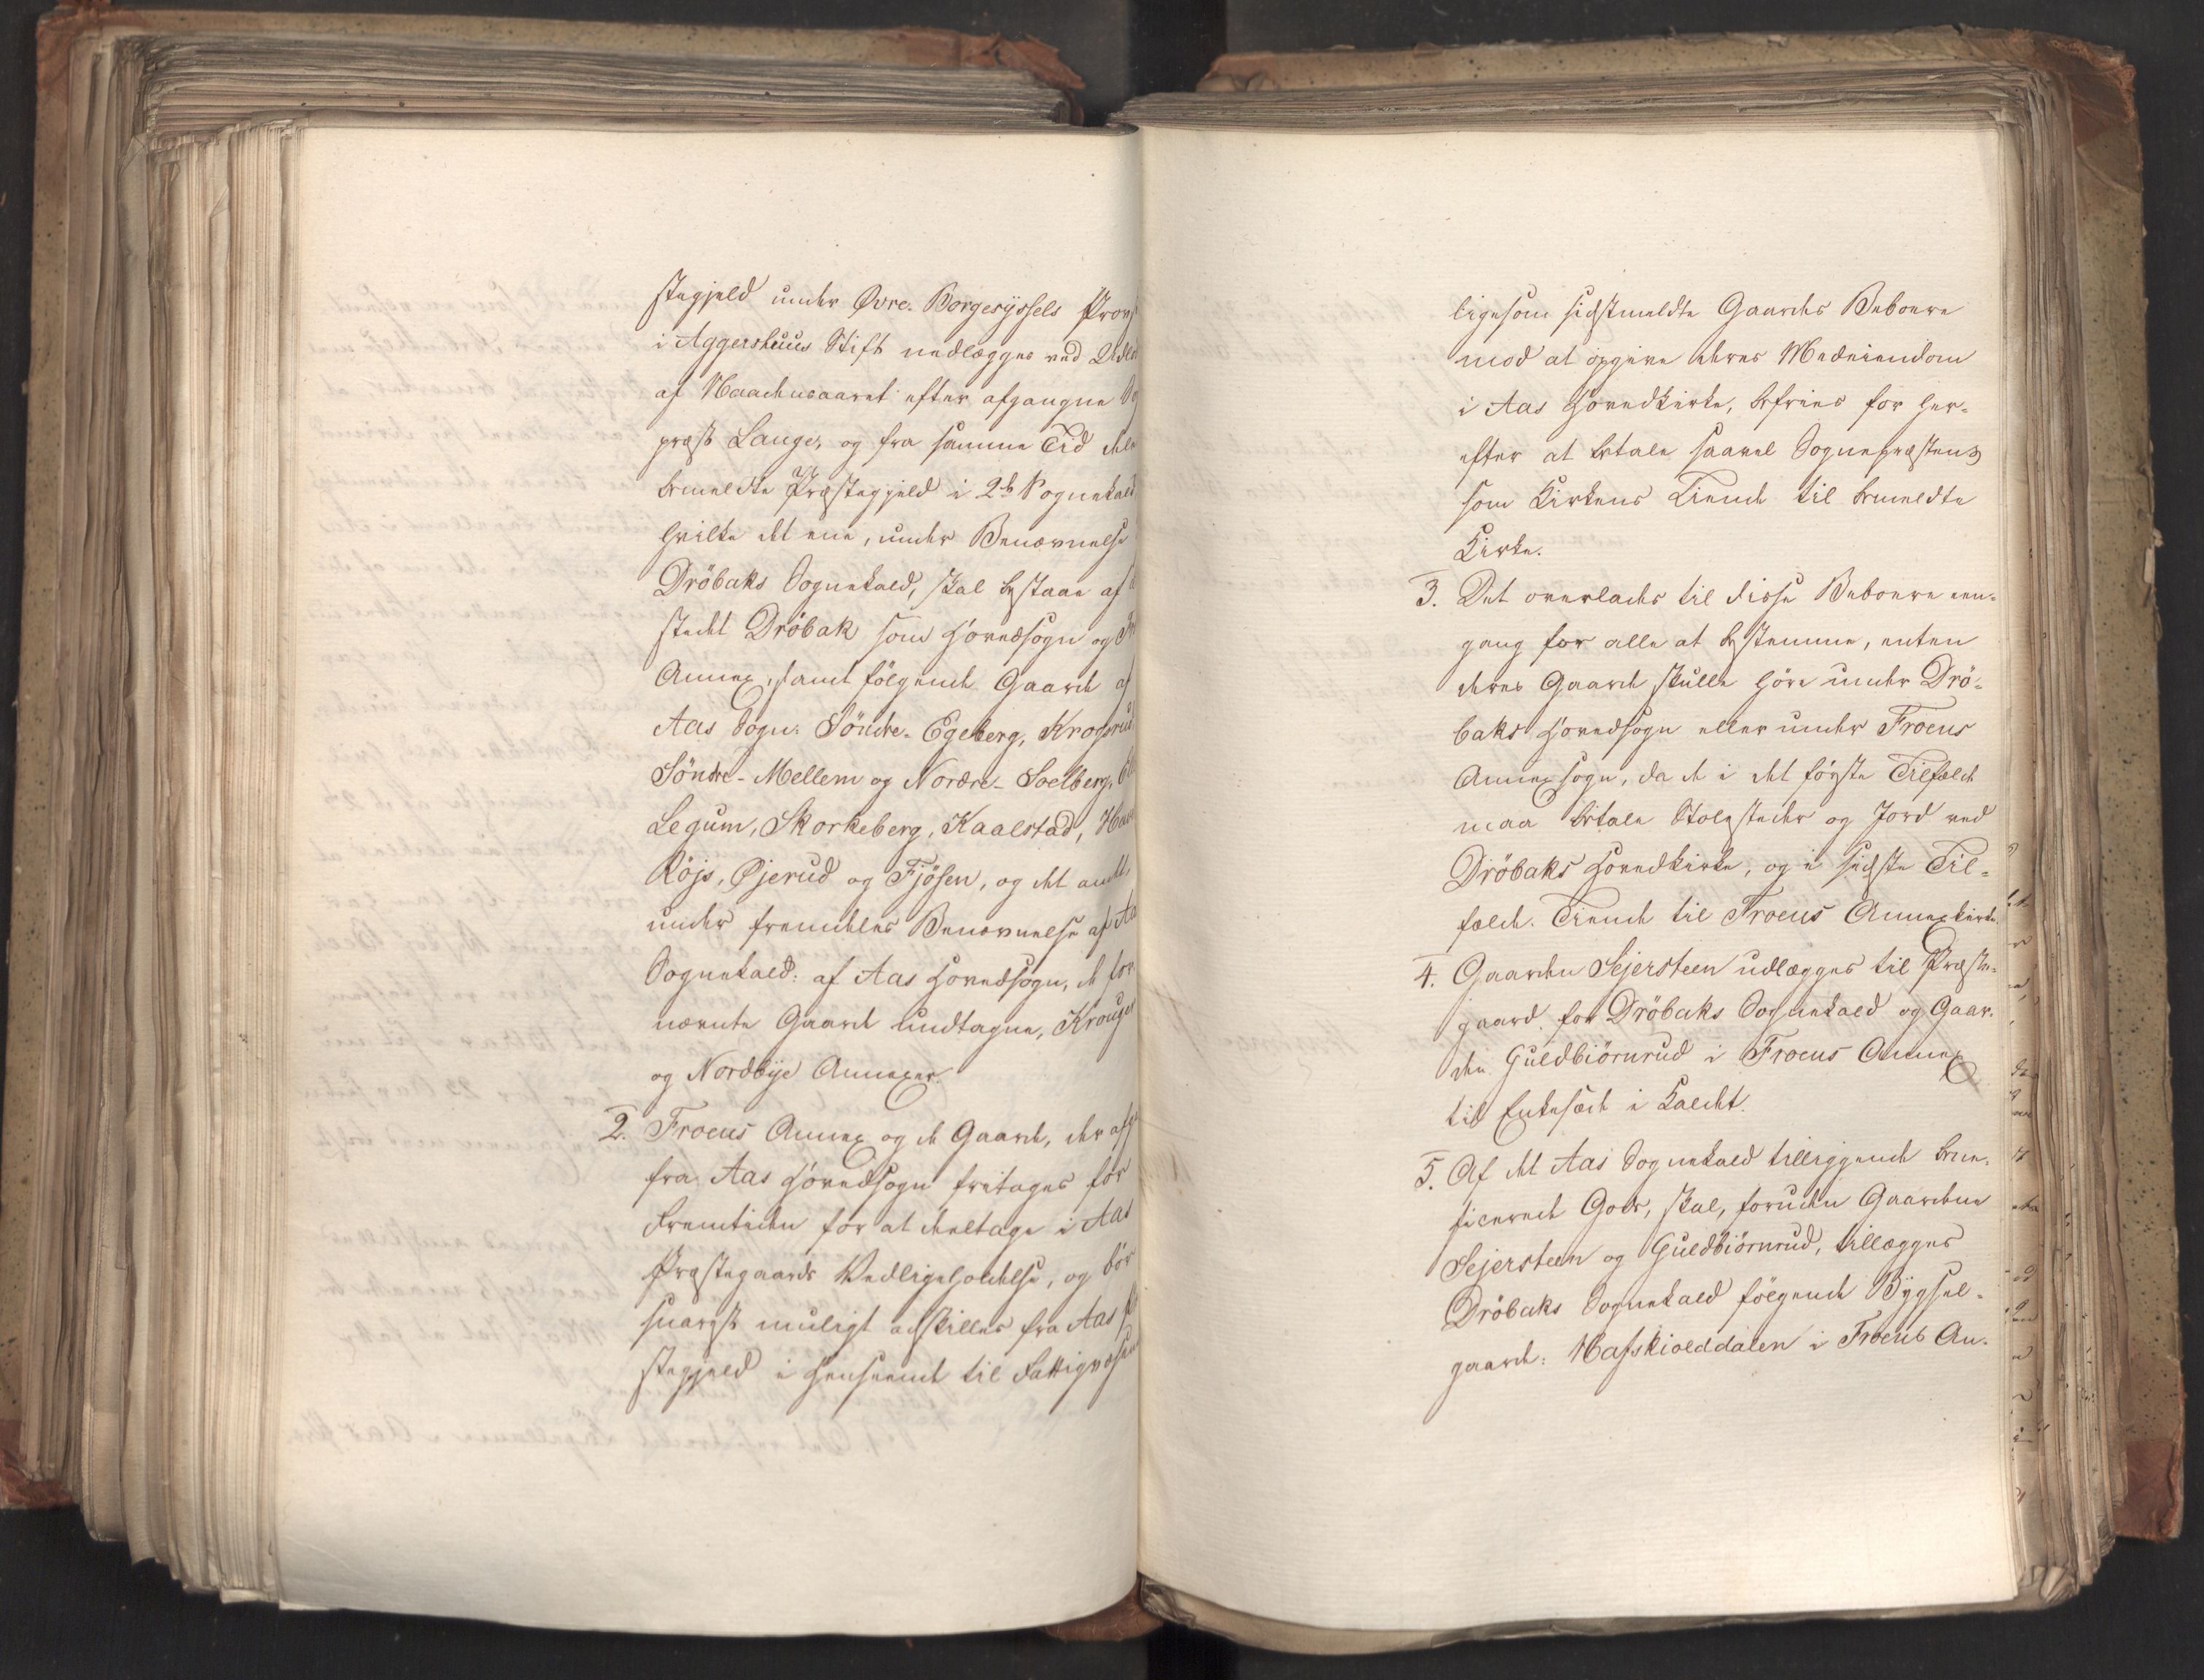 stegjeld under Øvre-Borgesyssels Provs
i Aggershuus Stift nedlægges ved Udlø
af Naadensaaret efter afgangne Sog
præst Lange, og fra samme Tid dele
bemeldte Præstegjeld i 2de Sognekald
hvilke det ene, under Benævnelse
Dröbaks Sognekald, skal bestaae af
stedet Dröbak som Hovedsogn og
Annex, samt fölgende Gaarde af
Aas Sogn: Söndre-Egeberg, Krogsrud
Söndre-Mellem og Nordre-Soelberg,
Legum, Skorkeberg, Kaalstad,
Röjs, Øjerud og Fjösen, og det andet,
under fremdeles Benævnelse af Aas
Sognekald: af Aas Hovedsogn, de for-
nævnte Gaarde undtagne, Krouger
og Nordbye Annexer.
2. Froens Annex og de Gaarde, der afg
fra Aas Hovedsogn fritages for
Fremtiden for at deeltage i Aas
Præstegaards Vedligeholdelse, og bör
snarest muligt adskilles fra Aas
stegjeld i Henseende til Fattigvæsen
ligesom sidstmeldte Gaardes Beboere
mod at opgive deres Medeiendom
i Aas Hovedkirke, befries for her-
efter at betale saavel Sognepræstens
som Kirkens Tiende til bemeldte
Kirke.
3. Det overlades til disse Beboere een-
gang for alle at bestemme, enten
deres Gaarde skulle höre under Drö-
baks Hovedsogn eller under Froens
Annexsogn, da de i det förste Tilfælde
maa betale Stolestader og Jord ved
Dröbaks Hovedkirke, og i sidste Til-
fælde Tiende til Froens Annexkirke.
4. Gaarden Sejersteen udlægges til Præste-
gaard for Dröbaks Sognekald og Gaar-
den Guldbiörnrud i Froens Annex
til Enkesæde i Kaldet.
5. Af det Aas Sognekald tilliggende bene-
ficerede Gods, skal, foruden Gaardene
Sejersteen og Guldbiörnrud, tillægges
Dröbaks Sognekald fölgende Bygsel-
gaarde: Hafskiolddalen i Froens An-